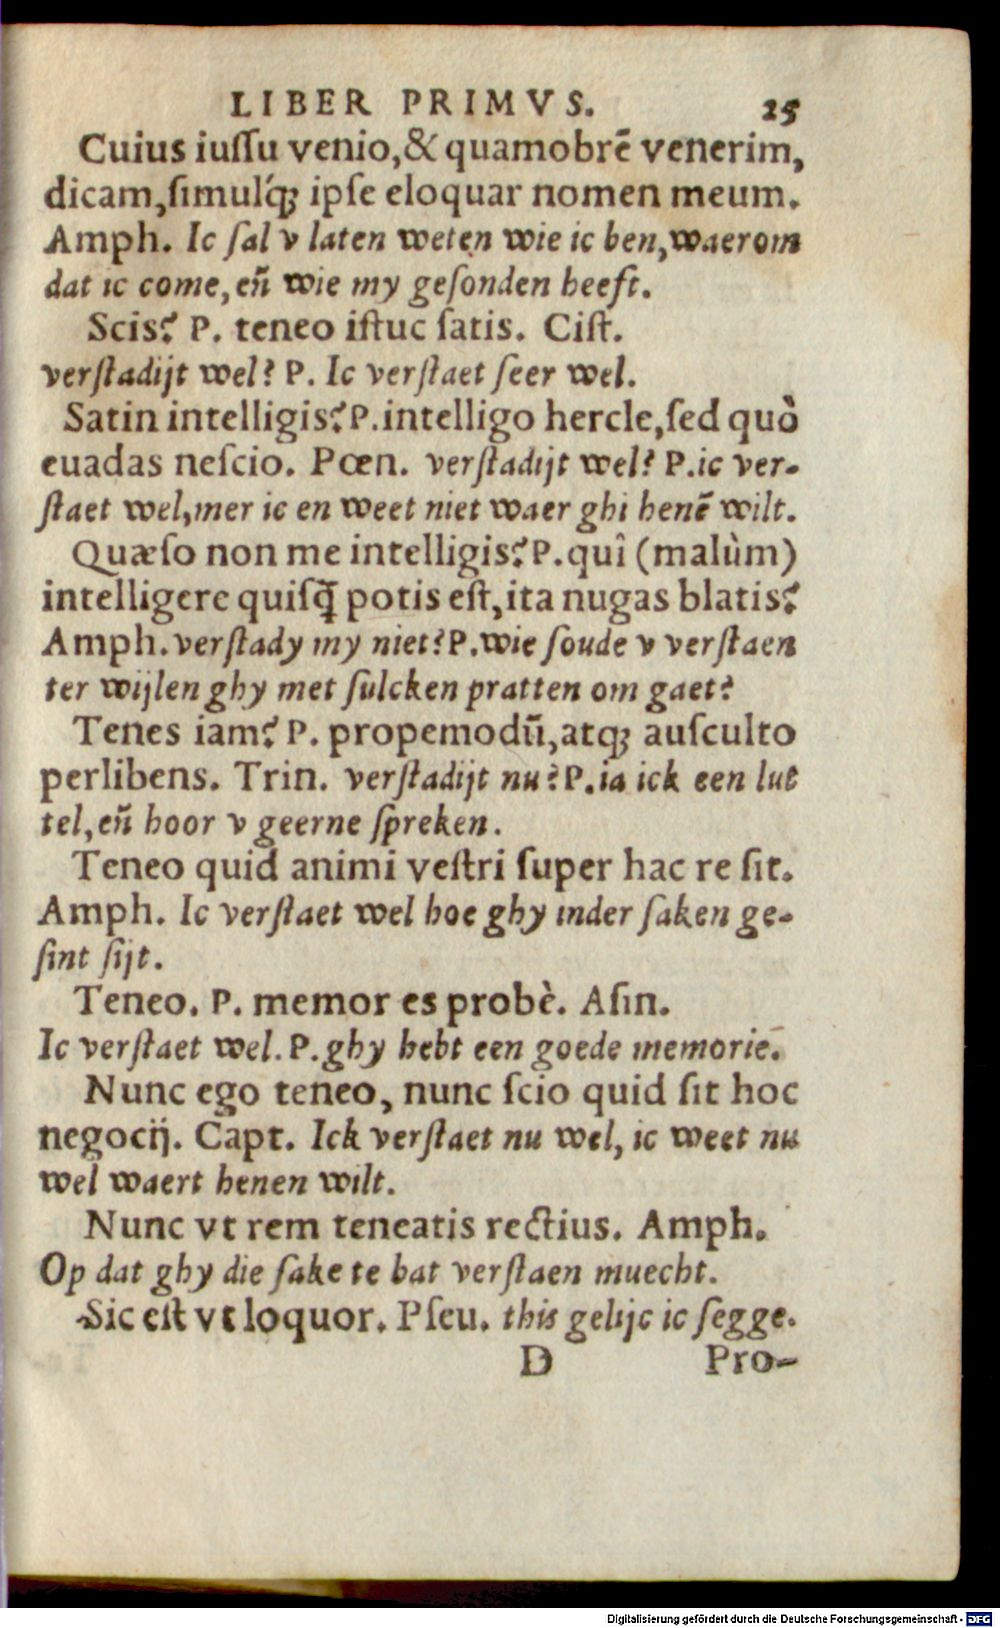 LIBER PRIMVS. 25
Cuius iuſſu venio,& quamobrẽ venerim,
dicam,ſimulq́; ipſe eloquar nomen meum.
Amph. Ic ſal v laten weten wie ic ben,waerom
dat ic come,eñ wie my geſonden heeft.
Scis? P. teneo iſtuc ſatis. Ciſt.
verſtadijt wel? P. Ic verſtaet ſeer wel.
Satin intelligis? P. intelligo hercle,ſed quò
euadas neſcio. Pœn. verſtadijt wel? P.ic ver-
ſtaet wel,mer ic en weet niet waer ghi henē wilt.
Quæſo non me intelligis? P.quî (malùm)
intelligere quiſq̄ potis eſt,ita nugas blatis?
Amph.verſtady my niet? P.wie ſoude v verſtaen
ter wijlen ghy met ſulcken pratten om gaet?
Tenes iam? P. propemodũ,atq; auſculto
perlibens. Trin. verſtadijt nu? P.ia ick een lut
tel,eñ hoor v geerne ſpreken.
Teneo quid animi veſtri ſuper hac re ſit.
Amph. Ic verſtaet wel hoe ghy inder ſaken ge-
ſint ſijt.
Teneo. P. memor es probè. Aſin.
Ic verſtaet wel. P.ghy hebt een goede memorie.
Nunc ego teneo, nunc ſcio quid ſit hoc
negocij. Capt. Ick verſtaet nu wel, ic weet nu
wel waert henen wilt.
Nunc vt rem teneatis rectius. Amph.
Op dat ghy die ſake te bat verſtaen muecht.
Sic eſt vt loquor. Pſeu. this gelijc ic ſegge.
D Pro-
Digitalisierung gefördert durch die Deutsche Forschungsgemeinschaft - DFG